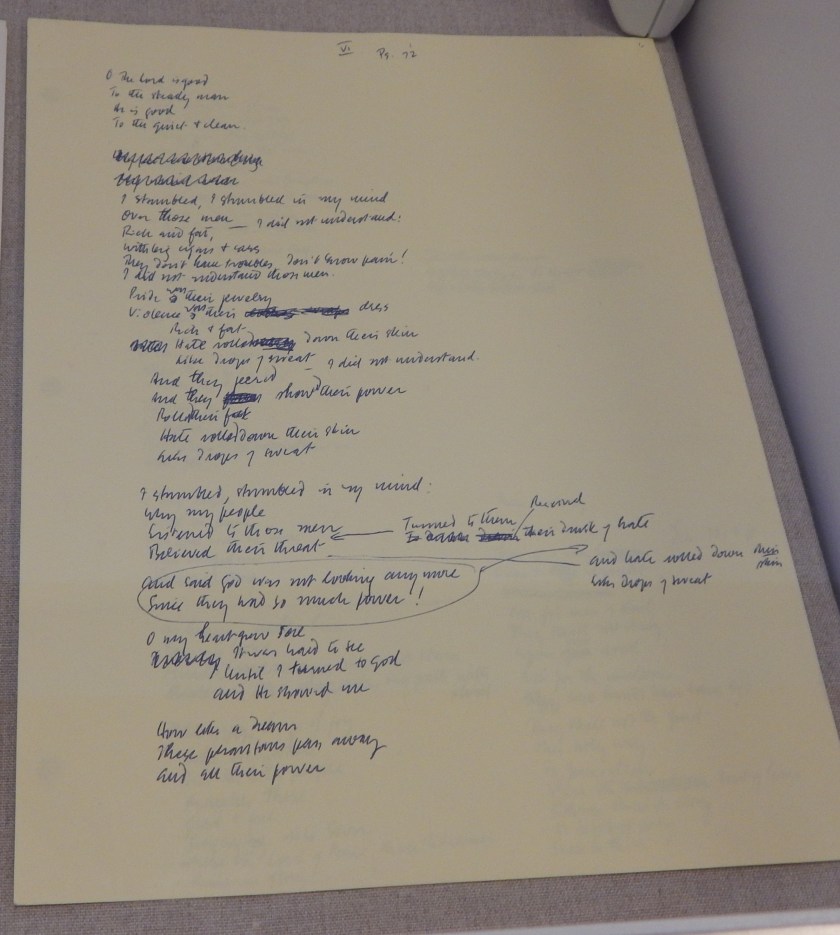 VI Ps. 72
O The Lord is good
To the steady man
He is good
To the quiet + clean.
I stumbled, I stumbled in my mind
Over those men — I did not understand:
Rich and fat,
With big cigars + cars
They don't have troubles, don't know pain!
I did not understand those men.
Pride was their jewelry
Violence was their dress
Rich + fat
Hate rolled down their skin
Like drops of sweat — I did not understand.
And they jeered
And they showed their power
Rolled their fat
Hate rolled down their skin
Like drops of sweat
I stumbled, stumbled in my mind:
Why my people
Listened to those men
Believed their threat
Turned to them
Received
their drink of hate
and hate rolled down their skin
like drops of sweat
And said God was not looking anymore
Since they had so much power!
O my heart grew sore
It was hard to see
Until I turned to God
and He showed me
How like a dream
These phantoms pass away
and all their power